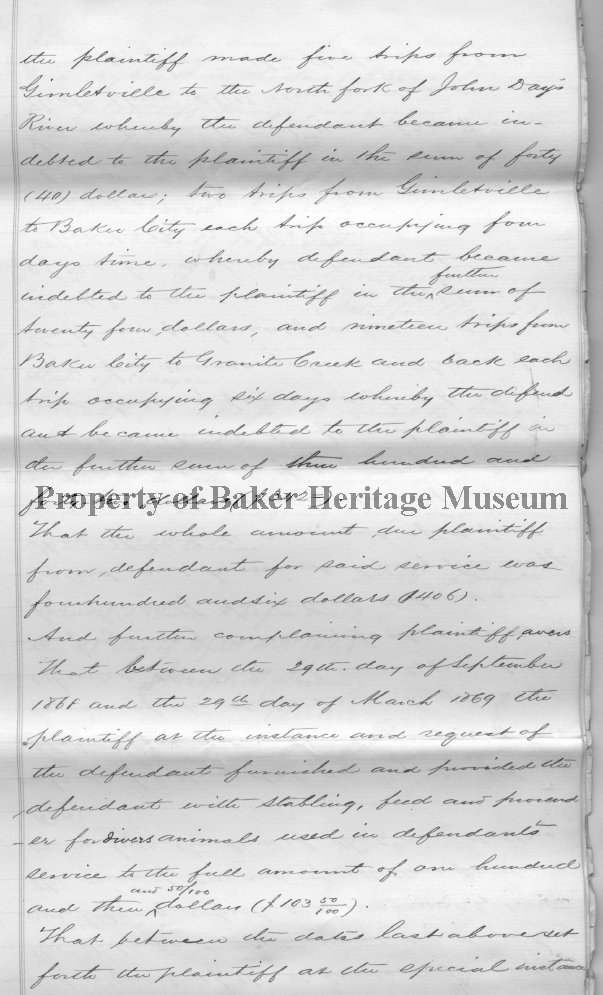 the plaintiff made five trips from
Gimletville to the North fork of John Day's
River whereby the defendant became in-
debted to the plaintiff in the sum of forty
(40) dollars; two trips from Gimletville
to Baker City each trip occupying four
days time, whereby defendant became
indebted to the plaintiff in the further sum of
twenty four dollars, and nineteen trips from
Baker City to Granite Creek and back each
trip occupying six days whereby the defend
ant became indebted to the plaintiff in
the further sum of three hundred and
Property of Baker Heritage Museum
That the whole amount due plaintiff
from defendant for said service was
four hundred and six dollars ($406).
And further complaining plaintiff avers
That between the 29th day of September
1868 and the 29th day of March 1869 the
plaintiff at the instance and request of
the defendant furnished and provided the
defendant with stabling, feed and provend
-er for divers animals used in defendant's
service to the full amount of one hundred
and three and 50/100 dollars ($103 50/100).
That between the dates last above set
forth the plaintiff at the special instance